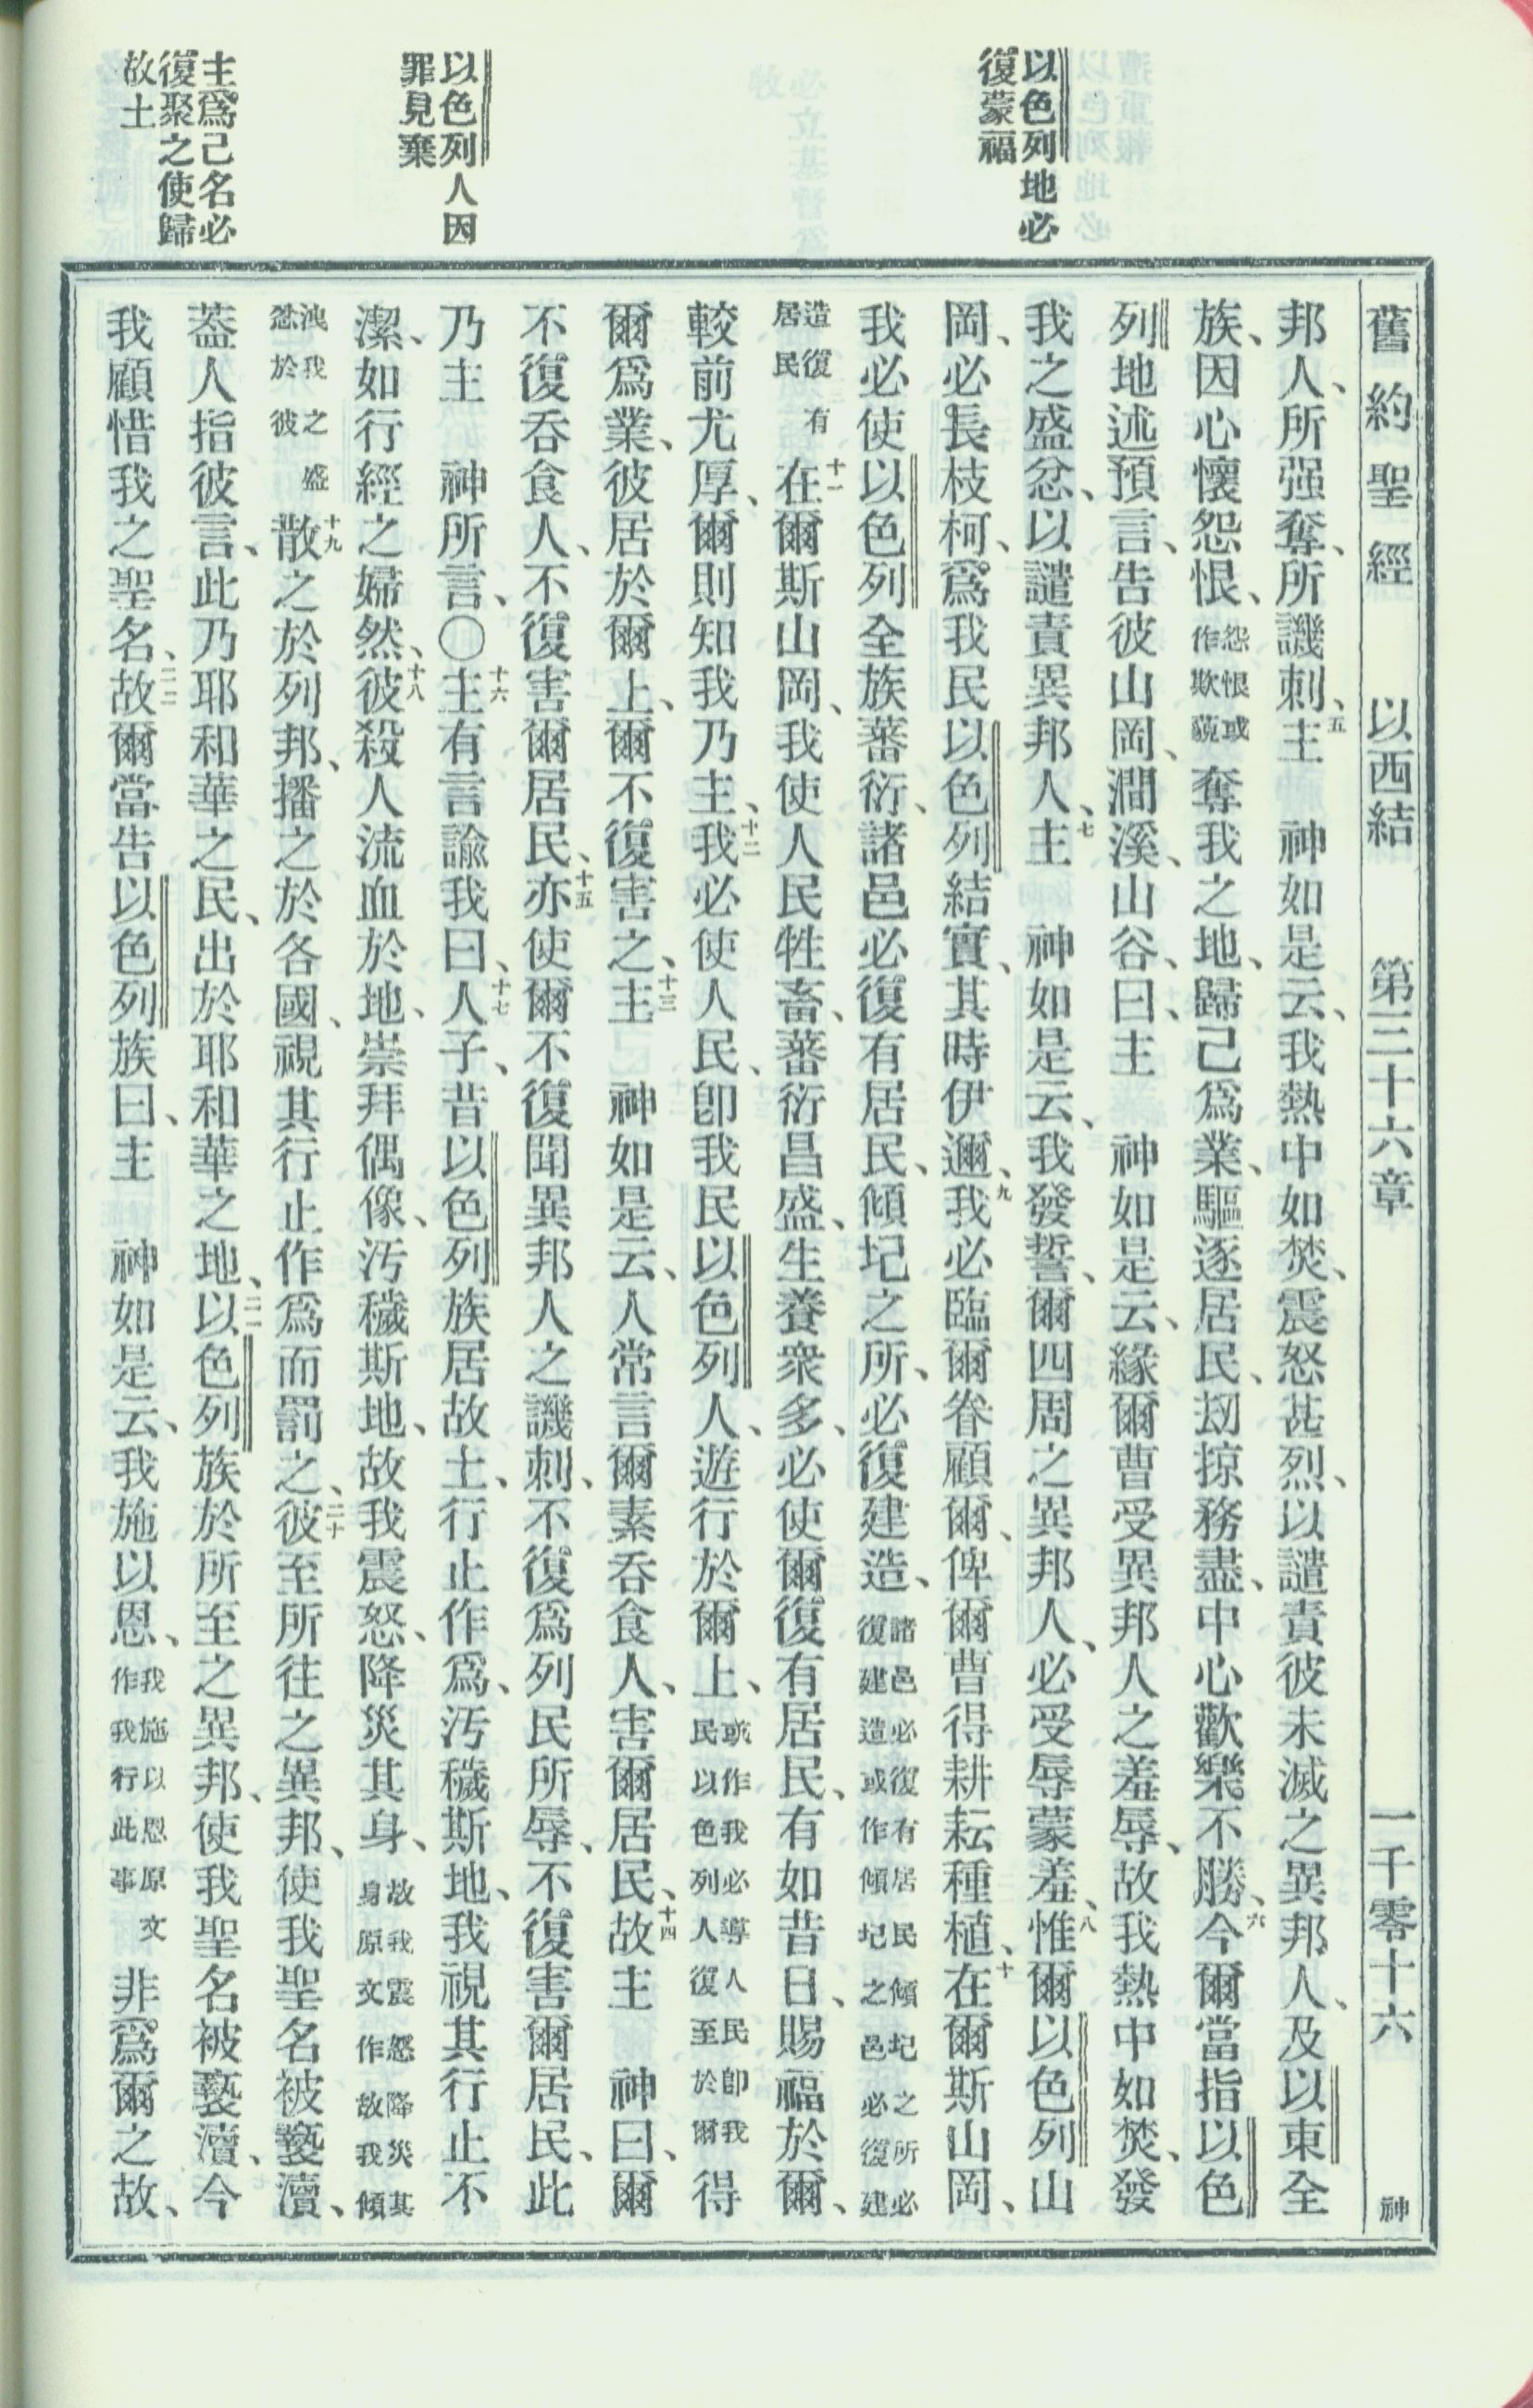 舊約聖經 以西結 第三十六章 一千零十六 神
以色列地必
復蒙福
以色列人因
罪見棄
主爲己名必
復聚之使歸
故土
邦人、所强奪、所譏刺、五主 神如是云、我熱中如焚、震怒甚烈、以譴責彼未滅之異邦人、及以東全
族、因心懷怨恨、怨恨或作欺藐奪我之地、歸己爲業、驅逐居民、刧掠務盡、中心歡樂不勝、六今爾當指以色
列地述預言、告彼山岡、澗溪、山谷、曰、主 神如是云、緣爾曹受異邦人之羞辱、故我熱中如焚、發
我之盛忿、以譴責異邦人、七主 神如是云、我發誓、爾四周之異邦人、必受辱蒙羞、八惟爾以色列山
岡、必長枝柯、爲我民以色列結實、其時伊邇、九我必臨爾眷顧爾、俾爾曹得耕耘種植、十在爾斯山岡、
我必使以色列全族蕃衍、諸邑必復有居民、傾圮之所、必復建造、諸邑必復有居民傾圮之所必復建造或作傾圮之邑必復建
造復有居民十一在爾斯山岡、我使人民牲畜、蕃衍昌盛、生養衆多、必使爾復有居民、有如昔日、賜福於爾、
較前尤厚、爾則知我乃主、十二我必使人民、卽我民以色列人、遊行於爾上、或作我必導人民卽我民以色列人復至於爾得
爾爲業、彼居於爾上、爾不復害之、十三主 神如是云、人常言爾素吞食人、害爾居民、十四故主 神曰、爾
不復吞食人、不復害爾居民、十五亦使爾不復聞異邦人之譏刺、不復爲列民所辱、不復害爾居民、此
乃主 神所言、〇十六主有言諭我曰、十七人子、昔以色列族居故土、行止作爲、汚穢斯地、我視其行止不
潔、如行經之婦然、十八彼殺人流血於地、崇拜偶像、汚穢斯地、故我震怒、降災其身、故我震怒降災其身原文作故我傾
洩我之盛忿於彼十九散之於列邦、播之於各國、視其行止作爲而罰之、二十彼至所往之異邦、使我聖名被褻瀆、
葢人指彼言、此乃耶和華之民、出於耶和華之地、二一以色列族於所至之異邦、使我聖名被褻瀆、今
我顧惜我之聖名、二二故爾當告以色列族曰、主 神如是云、我施以恩、我施以恩原文作我行此事非爲爾之故、